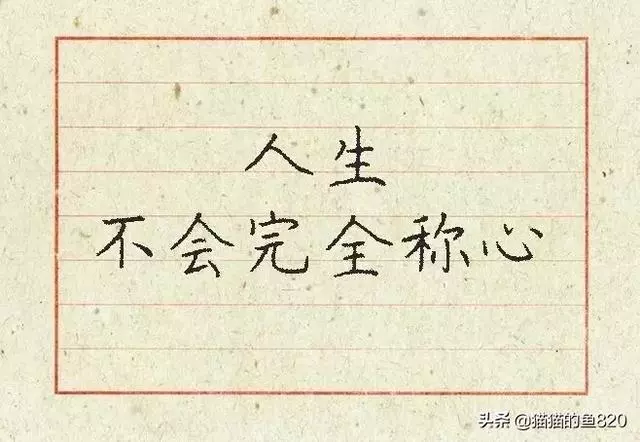 人生
不会完全称心
头条 @猫猫的鱼820